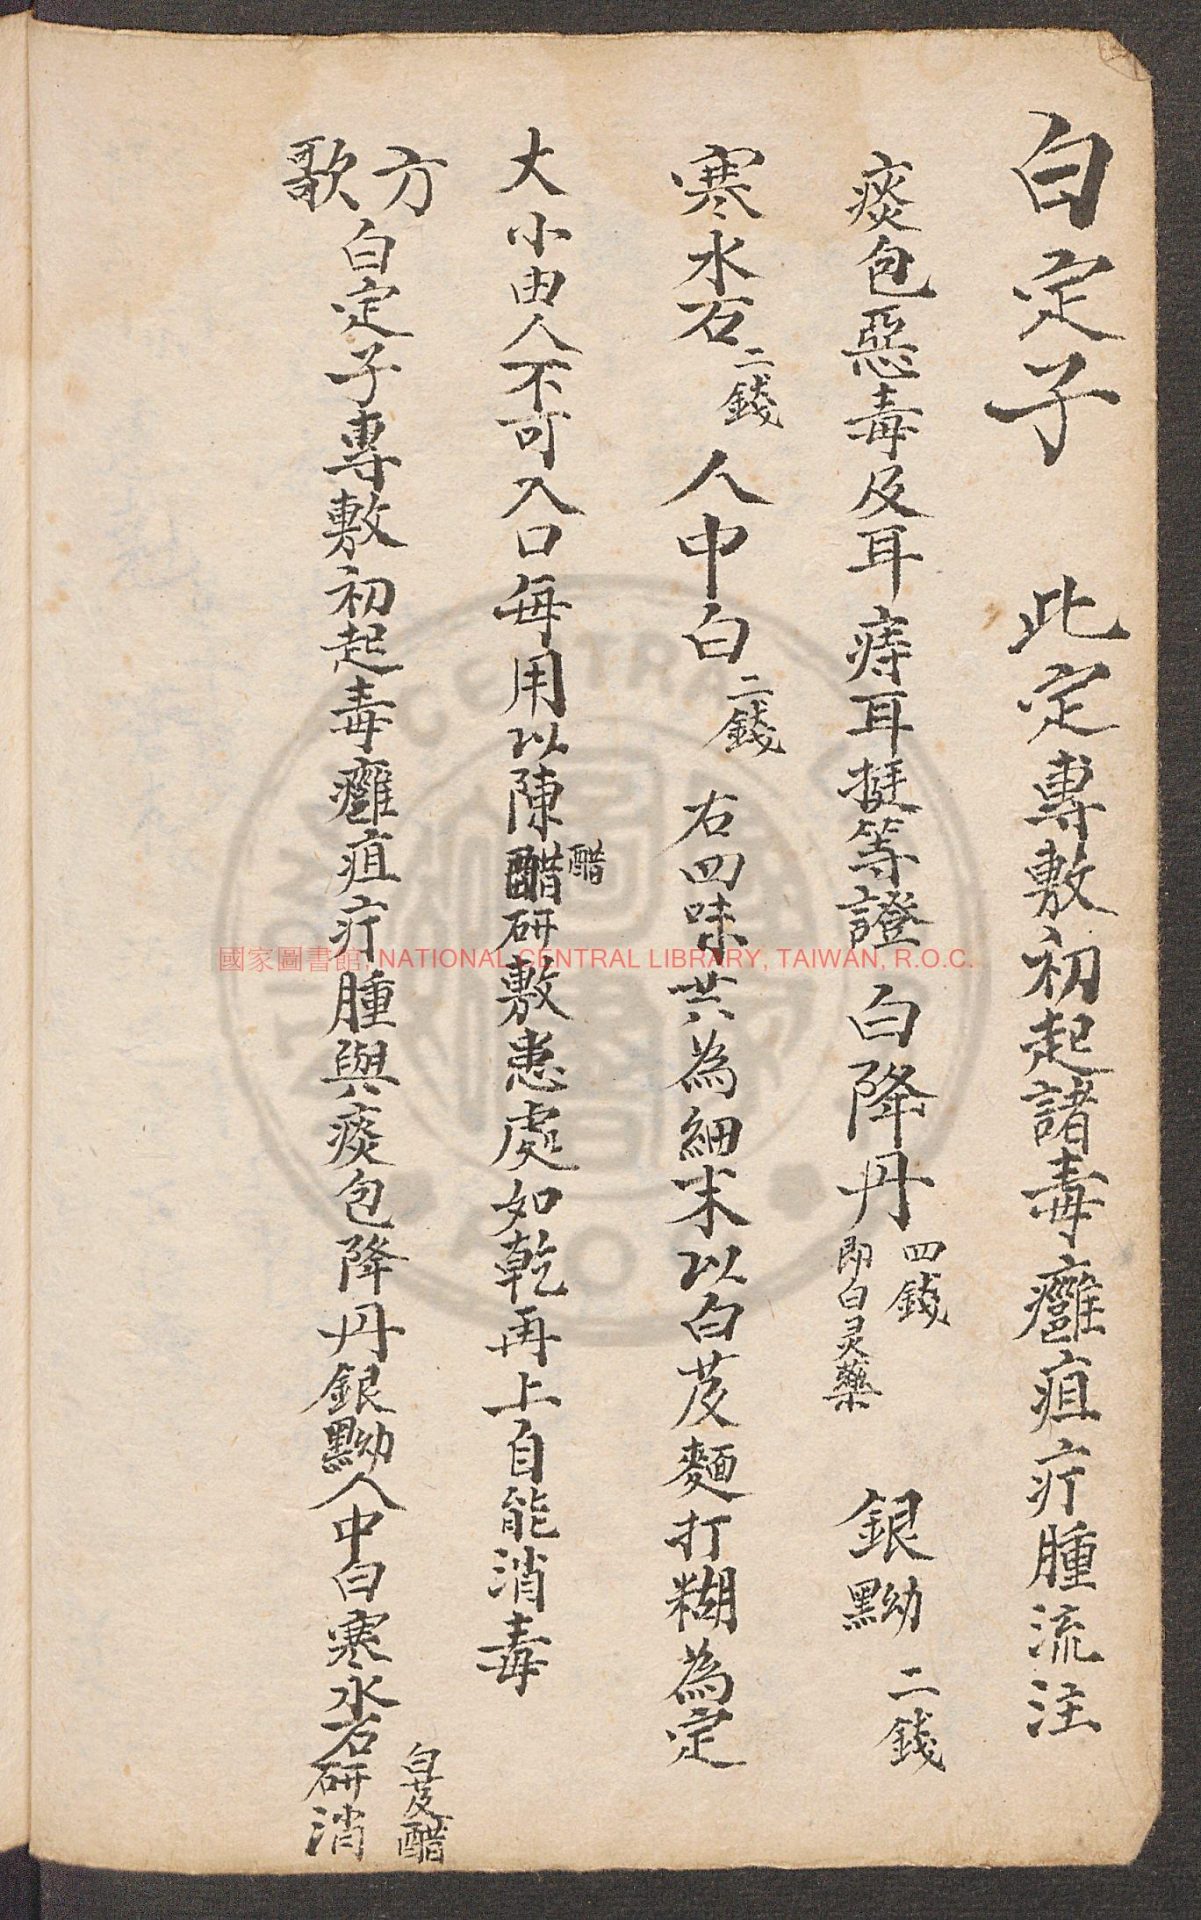 白定子　此定專敷初起諸毒癰疽疔腫流注
痰包惡毒及耳痔耳挺等證　白降丹四錢即白灵藥　銀黝二錢
寒水石二錢　人中白二錢　右四味共為細末以白芨麵打糊為定
大小由人不可入口每用以陳醋醋研敷患處如乾再上自能消毒
方歌　白定子專敷初起毒癰疽疔腫與痰包降丹銀黝人中白寒水石研消白芨醋
國家圖書館, NATIONAL CENTRAL LIBRARY, TAIWAN, R.O.C.